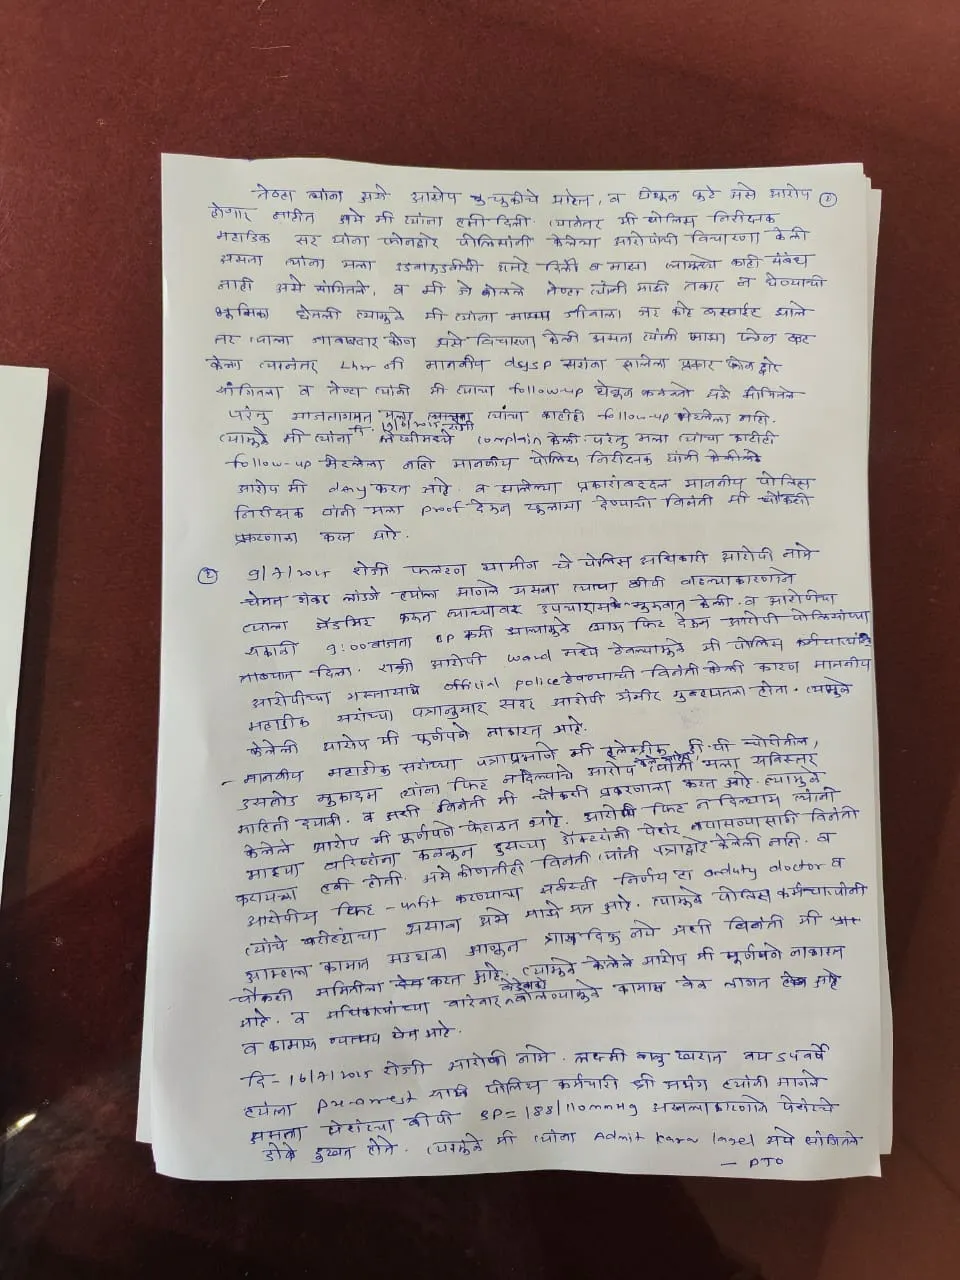 तेव्हा त्यांना असे आरोप चुकीचे आहेत, व येथून पुढे असे आरोप ①
होणार नाहीत असे मी त्यांना हमी दिली. त्यानंतर मी पोलिस निरीक्षक
महाडिक सर यांना फोनद्वारे पोलिसांनी केलेल्या आरोपांची विचारणा केली
असता त्यांनी मला उडवाउडवीची उत्तरे दिली व माझा त्यामध्ये काही संबंध
नाही असे सांगितले, व मी जे बोलले तेव्हा त्यांनी माझी तक्रार न घेण्याची
भूमिका घेतली त्यामुळे मी त्यांना माझ्या जीवाला जर काही झाले
तर त्याला जबाबदार कोण असे विचारणा केली असता त्यांनी माझा फोन कट
केला त्यानंतर मी माननीय dysp सरांना झालेला प्रकार फोन द्वारे
सांगितला व तेव्हा त्यांनी मी त्याचा follow-up घेऊन कळवतो असे सांगितले
परंतु आजतागायत मला त्यांचा काहीही follow-up भेटलेला नाही.
त्यामुळे मी त्यांना दि. 19/6/2025 रोजी लेखीमध्ये complain केली परंतु मला त्याचा काहीही
follow-up भेटलेला नाही माननीय पोलिस निरीक्षक यांनी केलेले
आरोप मी deny करत आहे. व झालेल्या प्रकाराबद्दल माननीय पोलिस
निरीक्षक यांनी मला proof देऊन खुलासा देण्याची विनंती मी चौकशी
प्रकरणाला करत आहे.
② 9/7/2025 रोजी फलटण ग्रामीण चे पोलिस अधिकारी आरोपी नामे
शंकर ह्याला आणले असता त्याचा बीपी वाढल्याकारणाने
त्याला अ‍ॅडमिट करून त्याच्यावर उपचारास सुरुवात केली. व आरोपीचा
सकाळी 9:00 वाजता BP कमी झाल्यामुळे त्यास फिट देऊन आरोपी पोलिसांच्या
ताब्यात दिला. रात्री आरोपी ward मध्ये ठेवल्यामुळे मी पोलिस कर्मचाऱ्यांना
आरोपीच्या official police ठेवण्याची विनंती केली कारण माननीय
महाडीक सरांच्या पत्रानुसार सदर आरोपी गंभीर गुन्ह्यातला होता. त्यामुळे
केलेली आरोप मी पूर्णपणे नाकारत आहे.
- माननीय महाडीक सरांच्या पत्राप्रमाणे मी इलेक्ट्रीक डी.पी चोरीतील,
ऊसतोड मुकादम त्यांना फिट न दिल्याचे आरोप केले आहेत, त्यांनी मला सविस्तर
माहिती द्यावी. व अशी विनंती मी चौकशी प्रकरणाला करत आहे. त्यामुळे
केलेले आरोप मी पूर्णपणे फेटाळत आहे. आरोपी फिट न दिल्यास त्यांनी
माझ्या वरिष्ठांना कळवून दुसऱ्या डॉक्टरांनी पेशंट तपासण्यासाठी विनंती
करायला हवी होती. असे कोणतीही विनंती त्यांनी पत्राद्वारे केलेली नाही. व
आरोपीस फिट - unfit करण्याचा सर्वस्वी निर्णय हा onduty doctor व
त्यांचे वरिष्ठांचा असावा असे माझे मत आहे. त्यामुळे पोलिस कर्मचाऱ्यांनी
आम्हाला कामात अडथळा आणून त्रास देऊ नये अशी विनंती मी
चौकशी समितीला करत आहे. त्यामुळे केलेले आरोप मी पूर्णपणे नाकारत
आहे. व अधिकाऱ्यांच्या वारंवार बोलण्यामुळे कामास वेळ लागत आहे
व कामास व्यत्यय येत आहे.
दि - 16/7/2025 रोजी आरोपी नामे. लक्ष्मी वय 54 वर्षे
ह्यांना Pre-arrest साठी पोलिस कर्मचारी श्री ह्यांनी आणले
असता पेशंटचा बीपी BP = 188/110mmHg असल्याकारणाने पेशंटचे
डोके दुखत होते. त्यामुळे मी त्यांना Admit karav lagel असे सांगितले
— PTO